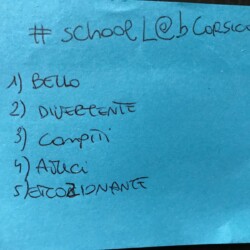 # school L@b CORSICO
1) BELLO
2) DIVERTENTE
3) Compiti
4) AMICI